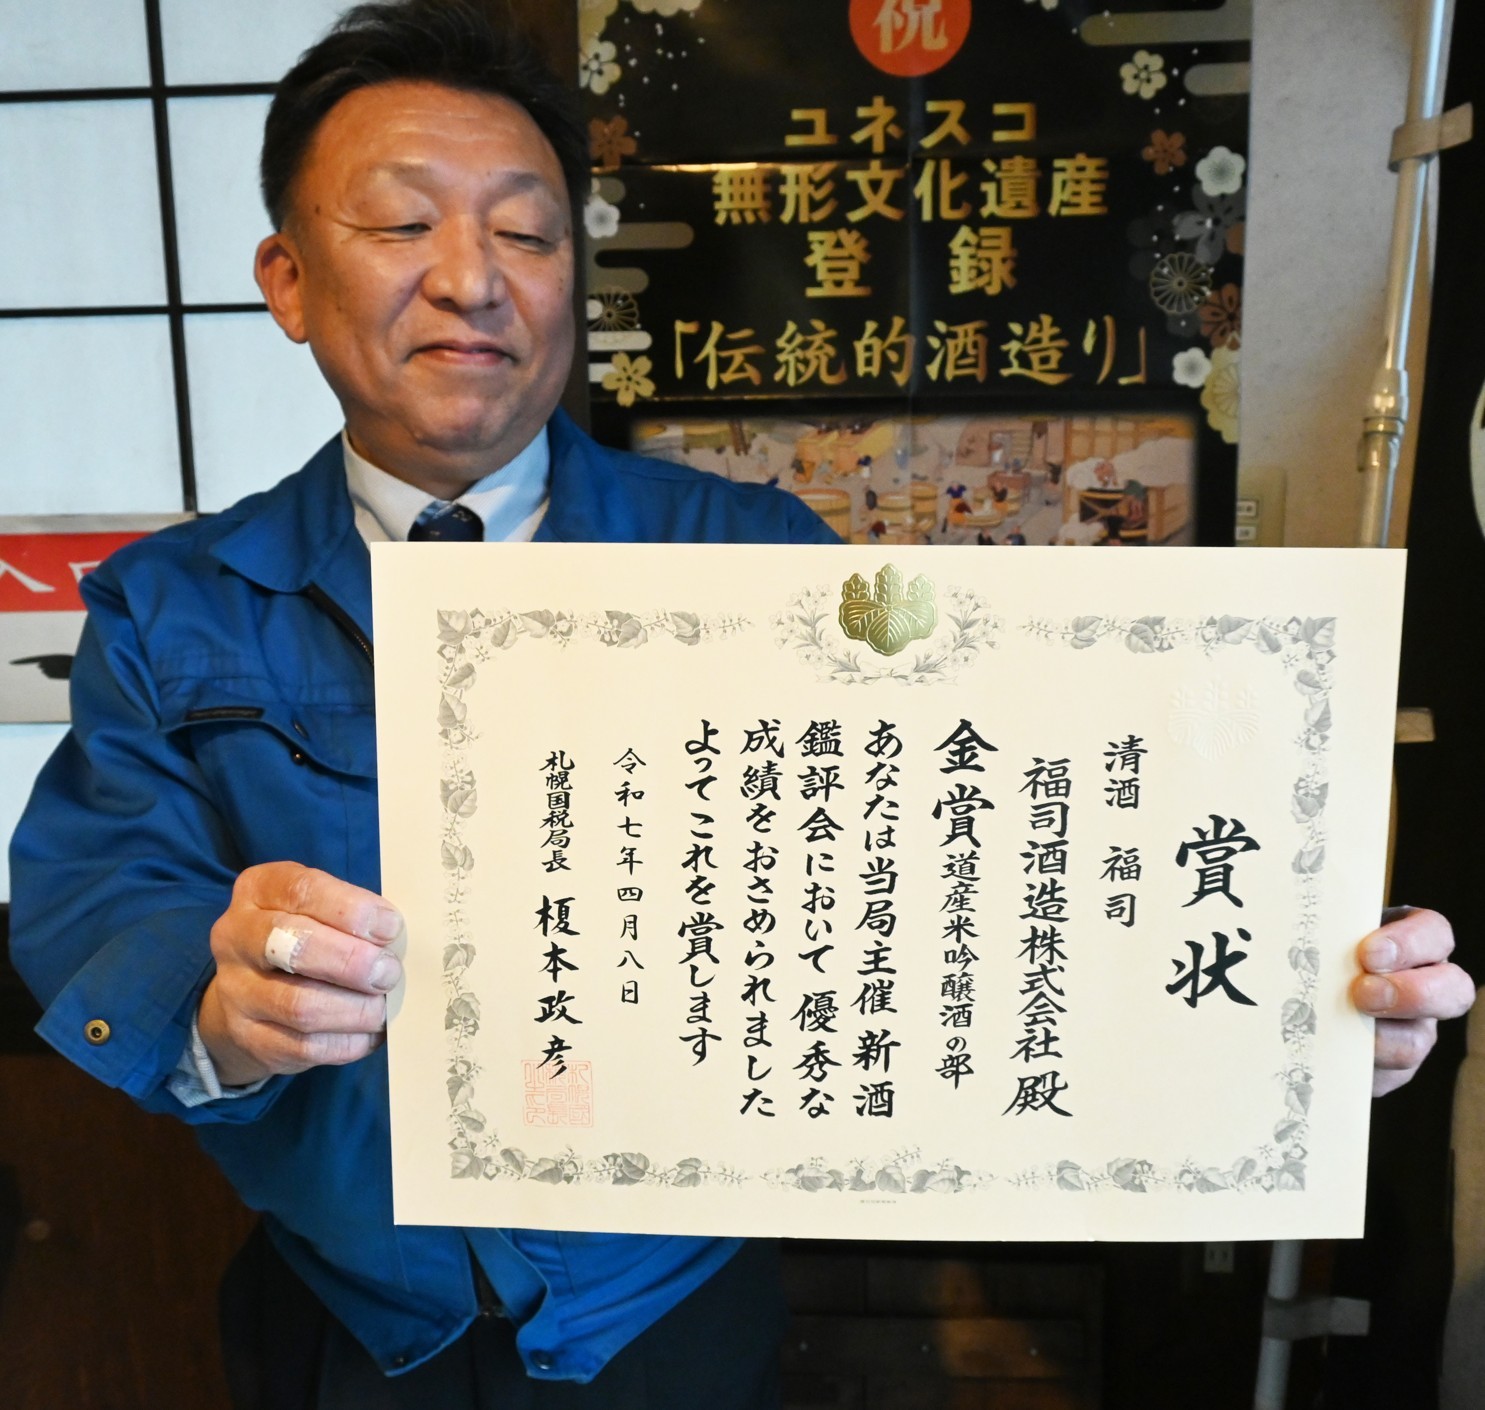 祝
ユネスコ
無形文化遺産
登録
「伝統的酒造り」
入口
賞状
清酒 福司
福司酒造株式会社 殿
金賞 道産米吟醸酒の部
あなたは当局主催 新酒
鑑評会において 優秀な
成績をおさめられました
よってこれを賞します
令和七年四月八日
札幌国税局長 榎本政彦